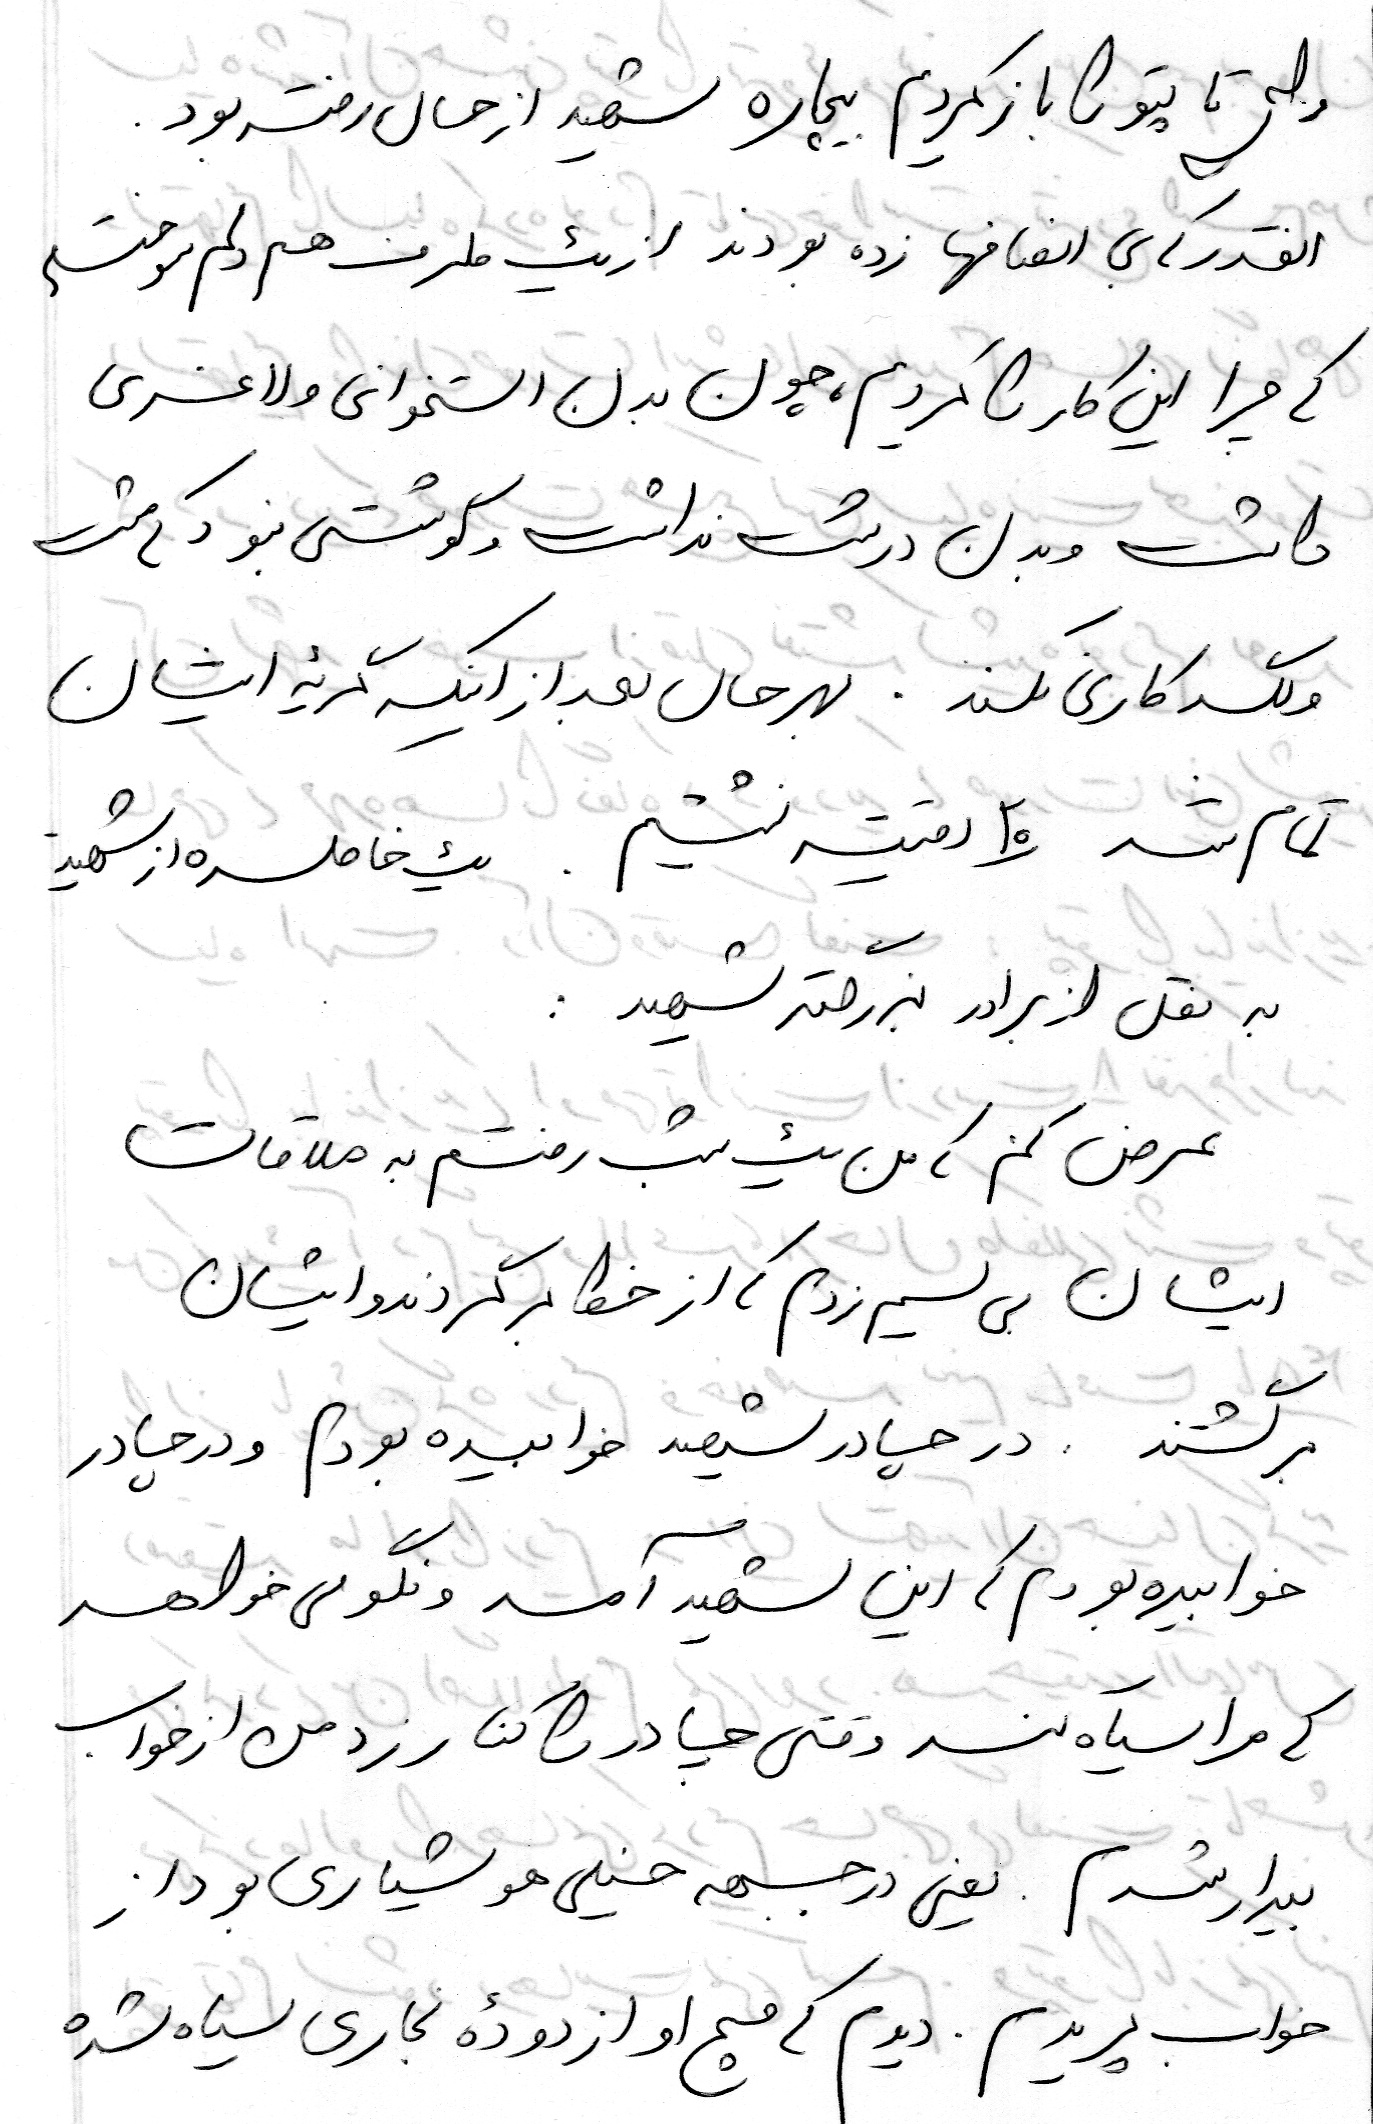 ولی تا پتو را باز کردیم بیچاره شهید از حال رفته بود .
انقدر که بی انصافها زده بودند از یک طرف هم دلم سوخت
که چرا این کار را کردیم، چون بدن استخوانی و لاغری
داشت و بدن درشت نداشت و گوشتی نبود که مشت
و لگد کاری نکند . بهرحال بعد از اینکه گریهٔ ایشان
تمام شد ۲۰ دقیقه نشستیم . یک خاطره از شهید
به نقل از برادر بزرگتر شهید :
عرض کنم که من یک شب رفتم به ملاقات
ایشان بی سیم زدم که از خط برگردند و ایشان
برگشتند . در چادر شهید خوابیده بودم و در چادر
خوابیده بودم که این شهید آمد و نگو می خواهد
که مرا سیاه کند وقتی چادر را کنار زد من از خواب
بیدار شدم . یعنی در جبهه خیلی هوشیاری بود از
خواب پریدم . دیدم که مچ او از دودهٔ بخاری سیاه شده